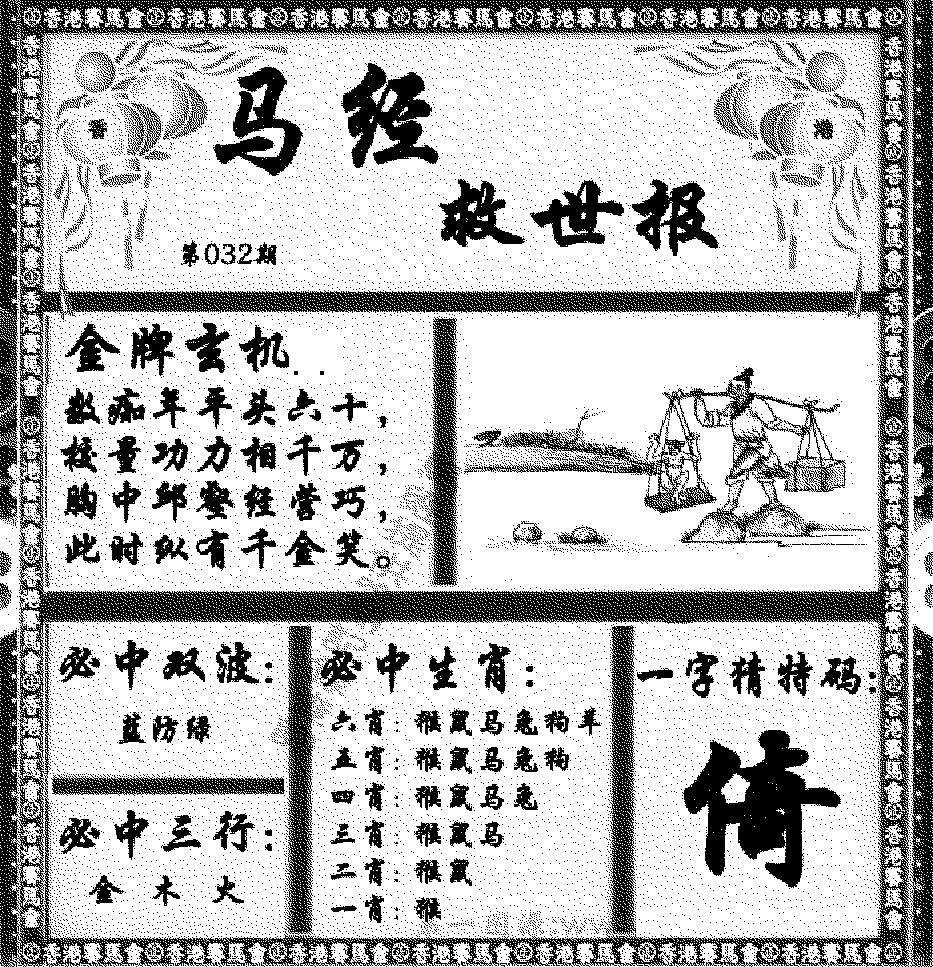 香港賽馬會香港賽馬會香港賽馬會香港賽馬會香港賽馬會香港賽馬會香港賽馬會
香
港
马经
救世报
第032期
金牌玄机..
数痂年平头六十，
校量功力相千万，
胸中邱壑经营巧，
此时纵有千金笑。
必中双波：
蓝防绿
必中三行：
金 木 火
必中生肖：
六肖：猴鼠马兔狗羊
五肖：猴鼠马兔狗
四肖：猴鼠马兔
三肖：猴鼠马
二肖：猴鼠
一肖：猴
一字猜特码：
倚
香港賽馬會香港賽馬會香港賽馬會香港賽馬會香港賽馬會香港賽馬會香港賽馬會